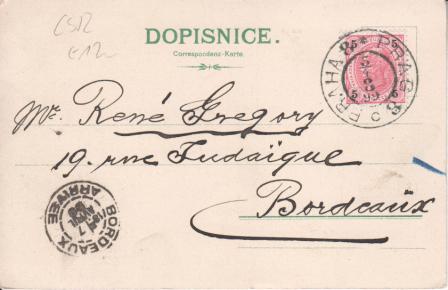 DOPISNICE.
Correspondenz-Karte.
PRAHA PRAG
99
Mr. René Gregory
19. rue Judaïque
Bordeaux
BORDEAUX
ARRIVÉE